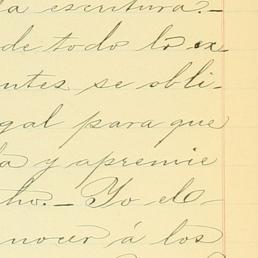 la escritura.-
de todo lo ex-
ntes se obli-
gal para que
la y apremie
ho.- Yo el-
nocer á los